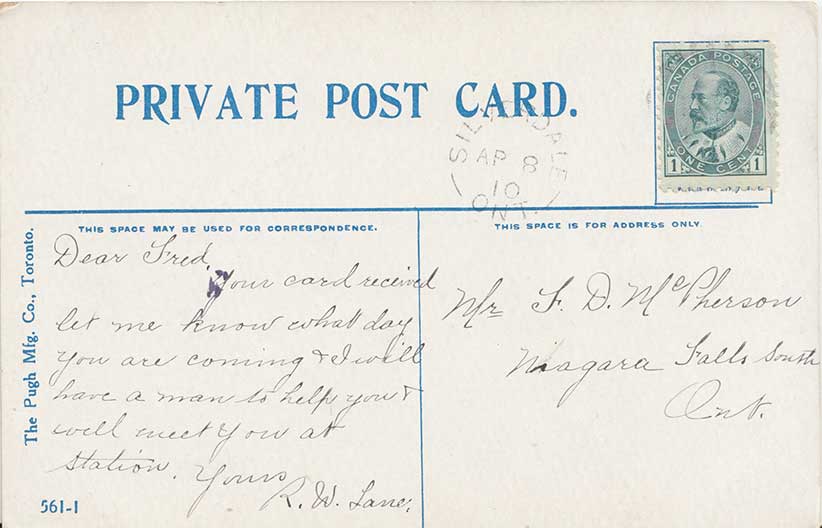 PRIVATE POST CARD.
CANADA POSTAGE
1 ONE CENT 1
SILVERDALE
AP 8
10
ONT.
THIS SPACE MAY BE USED FOR CORRESPONDENCE.
THIS SPACE IS FOR ADDRESS ONLY.
The Pugh Mfg. Co., Toronto.
Dear Fred
Your card received
let me know what day
you are coming & I will
have a man to help you &
will meet you at
Station. Yours
R. W. Lane.
Mr F. D. McPherson
Niagara Falls South
Ont.
561-1